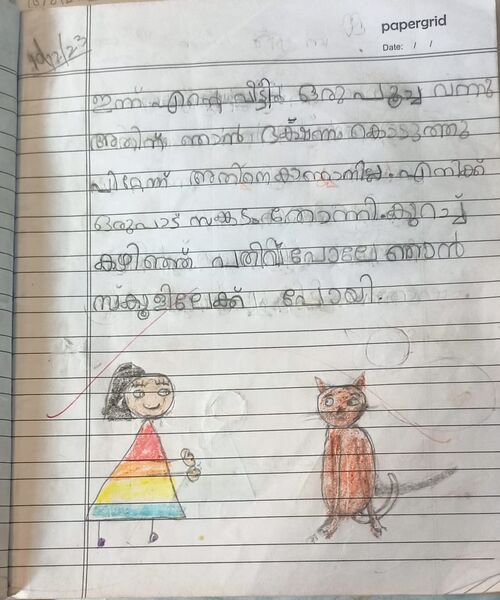 papergrid
Date: / /
10/12/23
ഇന്ന് എന്റെ വീട്ടിൽ ഒരു പൂച്ച വന്നു
അതിന് ഞാൻ ഭക്ഷണം കൊടുത്തു
പിറ്റേന്ന് അതിനെ കാണാനില്ല. എനിക്ക്
ഒരുപാട് സങ്കടം തോന്നി. കുറച്ച്
കഴിഞ്ഞ് പതിവ് പോലെ ഞാൻ
സ്കൂളിലേക്ക് പോയി.